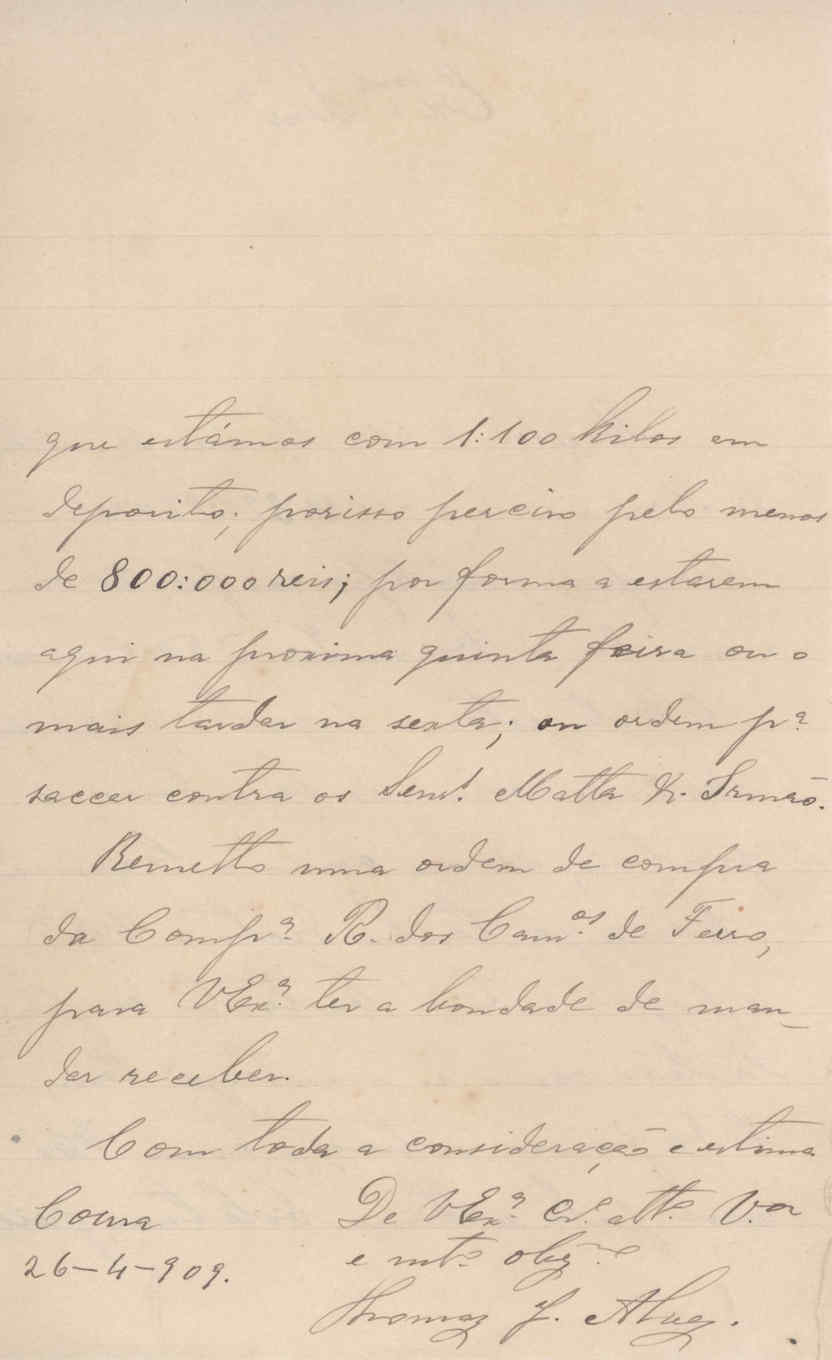 que estámos com 1:100 kilos em
deposito; porisso perciso pelo menos
de 800:000 reis; por forma a estarem
aqui na proxima quinta feira ou o
mais tardar na sexta; ou ordem pª
saccar contra os Senrs. Matta & Irmão.
Remetto uma ordem de compra
da Compª R. dos Camos. de Ferro,
para VExª. ter a bondade de man-
dar receber.
Com toda a consideração e estima
Coura
26-4-909.
De VExª. Cr.º att.º V.or
e mt.º obg.º
Thomaz J.